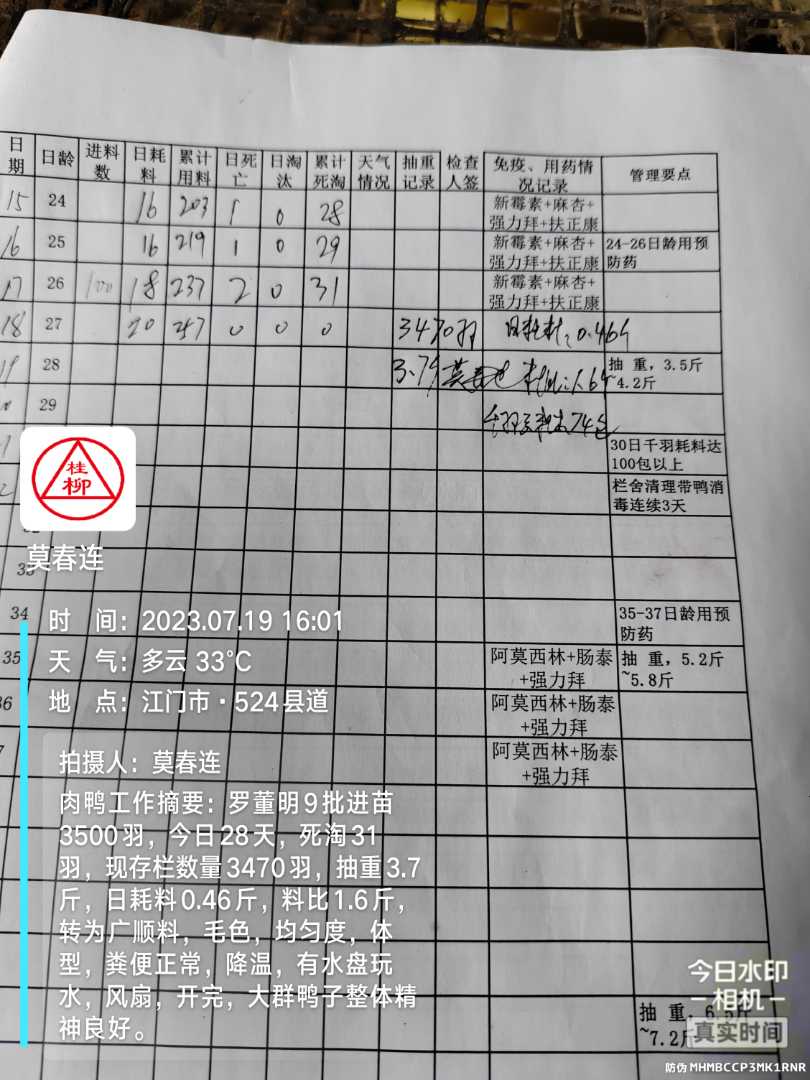 日期 日龄 进料数 日耗料 累计用料 日死亡 日淘汰 累计死淘 天气情况 抽重记录 检查人签 免疫、用药情况记录 管理要点
15 24 16 203 1 0 28 新霉素+麻杏+强力拜+扶正康
16 25 16 219 1 0 29 新霉素+麻杏+强力拜+扶正康 24-26日龄用预防药
17 26 100 18 237 2 0 31 新霉素+麻杏+强力拜+扶正康
18 27 20 257 0 0 0 3470羽 日耗料:0.46斤
19 28 3.7斤 莫春连 料比:1.6斤 抽 重,3.5斤~4.2斤
29
30日千羽耗料达100包以上
栏舍清理带鸭消毒连续3天
33
34 35-37日龄用预防药
35 阿莫西林+肠泰+强力拜 抽 重,5.2斤~5.8斤
36 阿莫西林+肠泰+强力拜
阿莫西林+肠泰+强力拜
抽 重,6.5斤~7.2斤
桂柳
莫春连
时 间:2023.07.19 16:01
天 气:多云 33℃
地 点:江门市·524县道
拍摄人:莫春连
肉鸭工作摘要:罗董明9批进苗
3500羽,今日28天,死淘31
羽,现存栏数量3470羽,抽重3.7
斤,日耗料0.46斤,料比1.6斤,
转为广顺料,毛色,均匀度,体
型,粪便正常,降温,有水盘玩
水,风扇,开完,大群鸭子整体精
神良好。
今日水印
相机
真实时间
防伪 MHMBCCP3MK1RNR